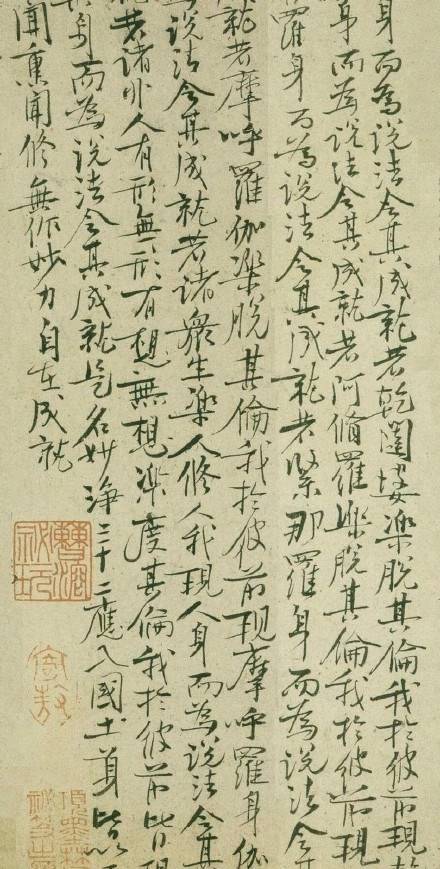 身而為說法令其成就若乾闥婆樂脫其倫我於彼前現乾
身而為說法令其成就若阿脩羅樂脫其倫我於彼前現
羅身而為說法令其成就若緊那羅身而為說法令其
就若摩呼羅伽樂脫其倫我於彼前現摩呼羅身伽
為說法令其成就若諸衆生樂人修人我現人身而為說法令其
就若諸非人有形無形有想無想樂度其倫我於彼前皆現
身而為說法令其成就是名妙淨三十二應入國土身皆以
聞熏聞修無作妙力自在成就